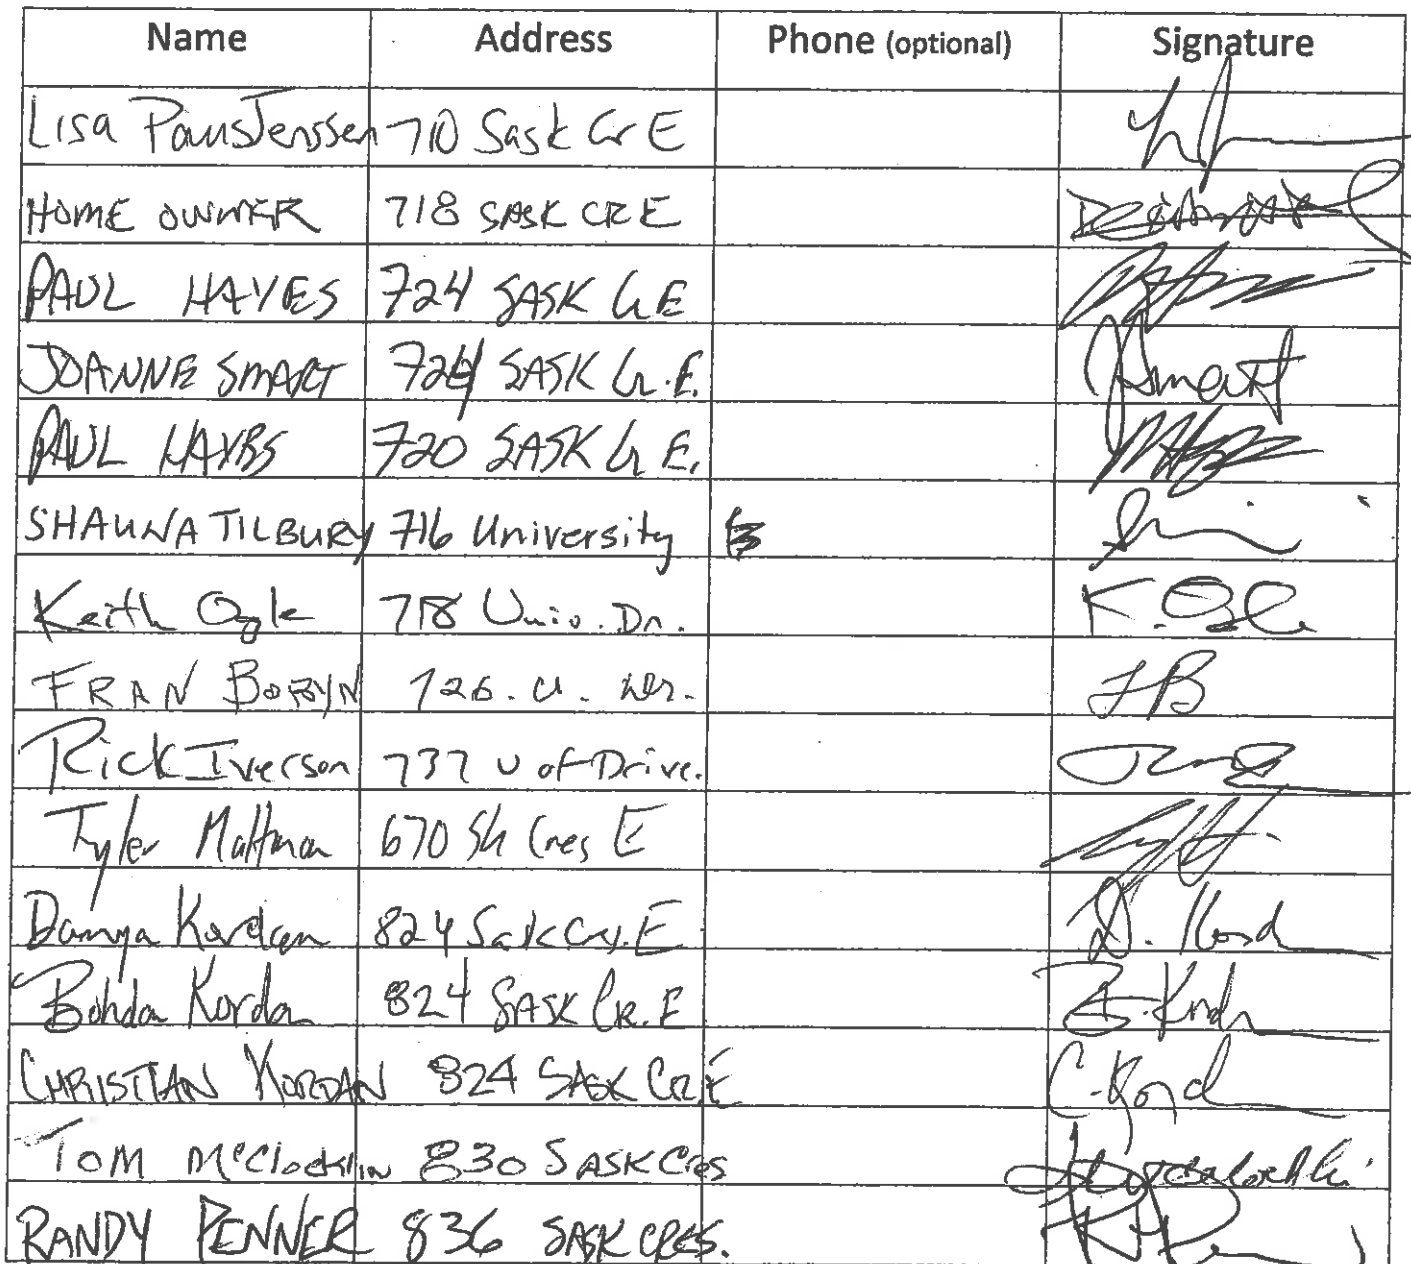 Name Address Phone (optional) Signature
Lisa PausJenssen 710 Sask Cr E
HOME OWNER 718 SASK CR E
PAUL HAYES 724 SASK Cr E
JOANNE SMART 724 SASK Cr. E. JSmart
PAUL HAYES 720 SASK Cr E.
SHAUNA TILBURY 716 University
Keith Ogle 718 Univ. Dr. K. Ogle
FRAN BORYN 726. U. Dr. FB
Rick Iverson 737 U of Drive.
Tyler 670 Sk Cres E
Danya Kordan 824 Sask Cres. E D. Kord
Bohdan Kordan 824 SASK CR. E B. Kord
CHRISTIAN KORDAN 824 SASK CR. E C. Kord
TOM McClocklin 830 SASK Cres
RANDY PENNER 836 SASK CRES.